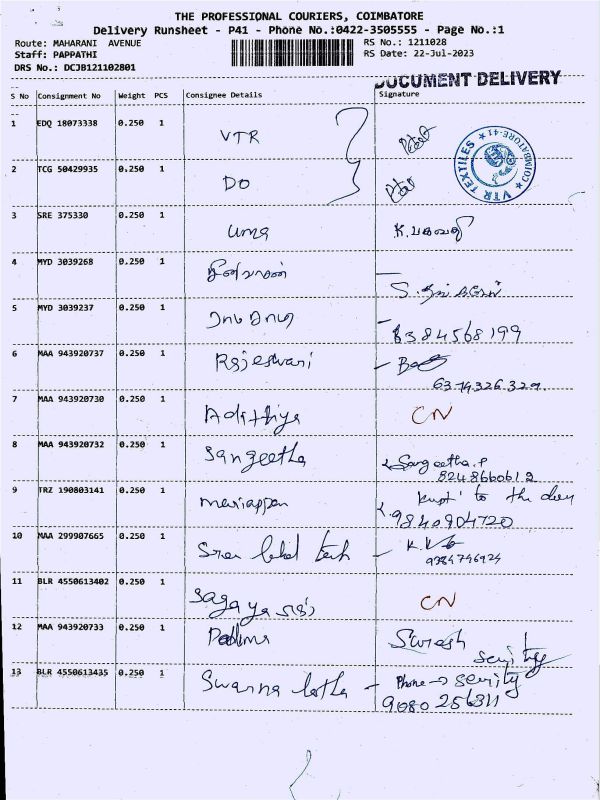 THE PROFESSIONAL COURIERS, COIMBATORE
Delivery Runsheet - P41 - Phone No.:0422-3505555 - Page No.:1
Route: MAHARANI AVENUE
Staff: PAPPATHI
DRS No.: DCJB121102801
RS No.: 1211028
RS Date: 22-Jul-2023
DOCUMENT DELIVERY
S No Consignment No Weight PCS Consignee Details Signature
1 EDQ 18073338 0.250 1 VTR
VTR TEXTILES ★ COIMBATORE-41 ★
2 TCG 50429935 0.250 1 DO
3 SRE 375330 0.250 1 uma K.
4 MYD 3039268 0.250 1
5 MYD 3039237 0.250 1 8384568199
6 MAA 943920737 0.250 1 Rajeswari
6374326329
7 MAA 943920730 0.250 1 Adithiya CN
8 MAA 943920732 0.250 1 Sangeetha Sangeetha.P
8248660612
9 TRZ 190803141 0.250 1 mariappan to the
9840904720
10 MAA 299907665 0.250 1 Sree label tech
9384746924
11 BLR 4550613402 0.250 1 Sagaya CN
12 MAA 943920733 0.250 1 Padma Suresh
13 BLR 4550613435 0.250 1 Swarna latha - Phone → serity
9080256311